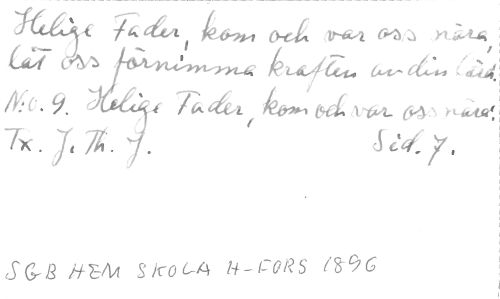 Helige Fader, kom och var oss nära,
låt oss förnimma kraften av din lära.
N:o. 9. Helige Fader, kom och var oss nära.
Tx. J. Th. J. Sid. 7.
SGB HEM SKOLA H-FORS 1896